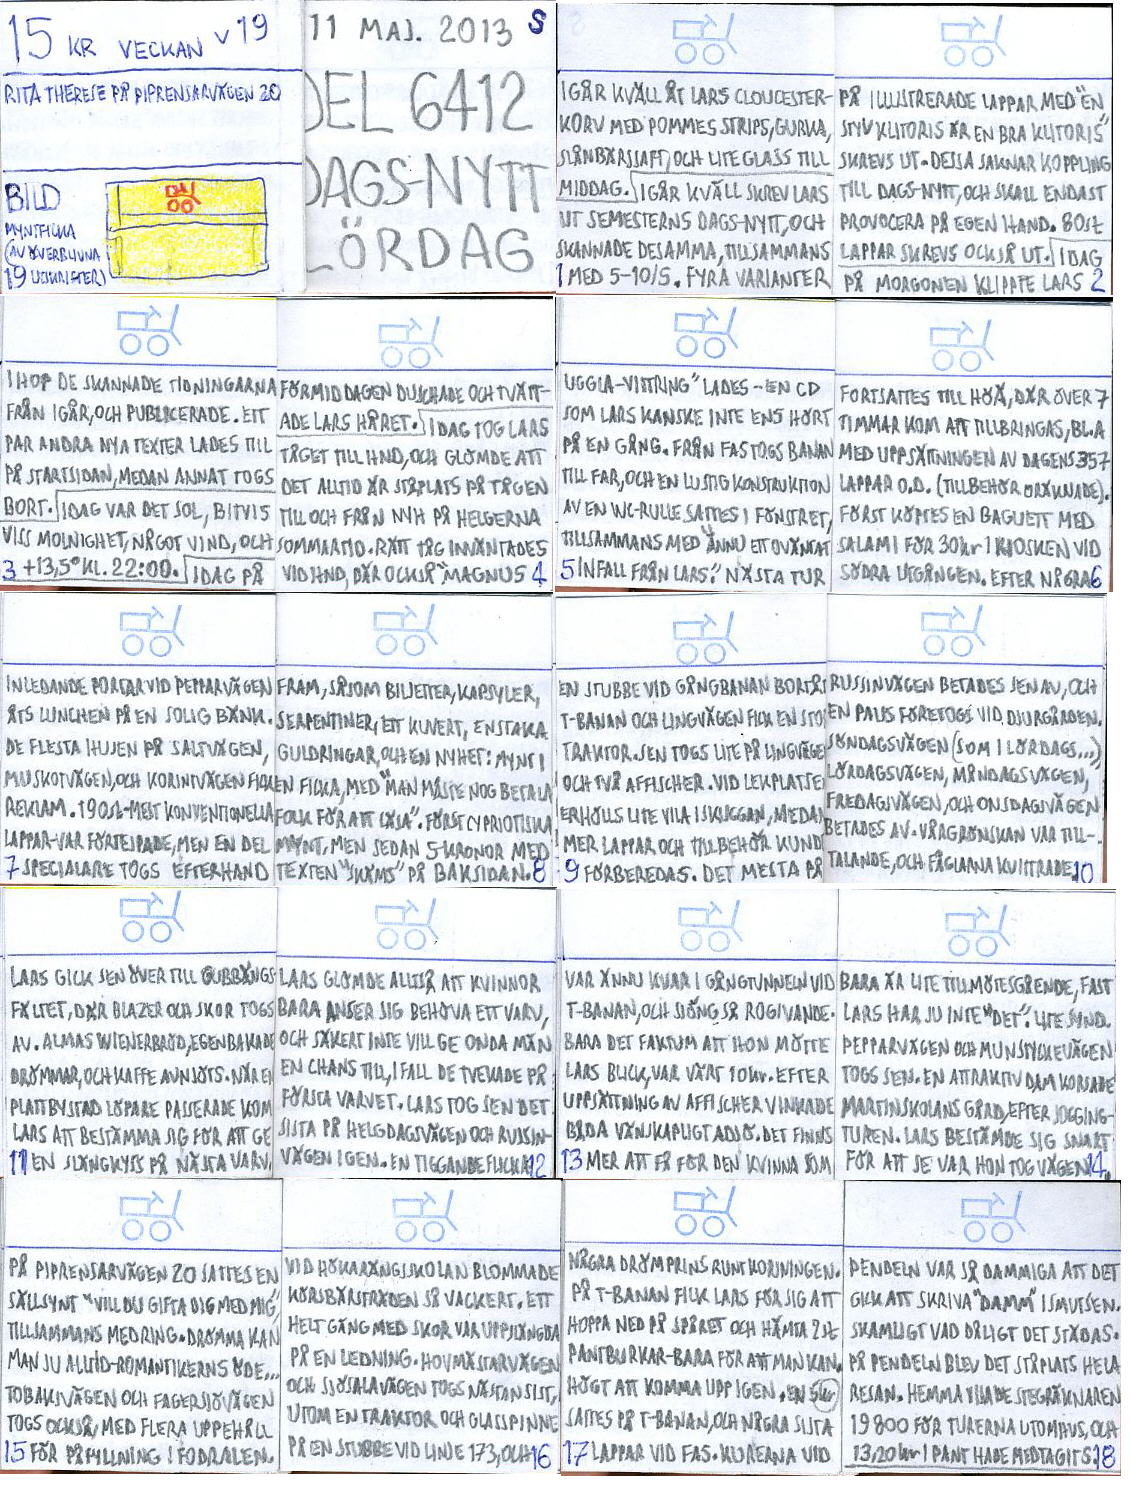 15 KR VECKAN V19
RITA THERESE PÅ PIPRENSARVÄGEN 20
BILD
MYNTFICKA
(AV ÖVERBLIVNA
19 UTSKRIFTER)
11 MAJ. 2013 S
DEL 6412
DAGS-NYTT
LÖRDAG
IGÅR KVÄLL ÅT LARS CLOUCESTER-
KORV MED POMMES STRIPS, GURKA,
SLÅNBÄRSSAFT, OCH LITE GLASS TILL
MIDDAG. IGÅR KVÄLL SKREV LARS
UT SEMESTERNS DAGS-NYTT, OCH
SKANNADE DESAMMA, TILLSAMMANS
1 MED 5-10/5. FYRA VARIANTER
PÅ ILLUSTRERADE LAPPAR MED "EN
STYV KLITORIS ÄR EN BRA KLITORIS"
SKREVS UT. DESSA SAKNAR KOPPLING
TILL DAGS-NYTT, OCH SKALL ENDAST
PROVOCERA PÅ EGEN HAND. 80ST
LAPPAR SKREVS OCKSÅ UT. IDAG
PÅ MORGONEN KLIPPTE LARS 2
IHOP DE SKANNADE TIDNINGARNA
FRÅN IGÅR, OCH PUBLICERADE. ETT
PAR ANDRA NYA TEXTER LADES TILL
PÅ STARTSIDAN, MEDAN ANNAT TOGS
BORT. IDAG VAR DET SOL, BITVIS
VISS MOLNIGHET, NÅGOT VIND, OCH
3 +13,5° KL. 22:00. IDAG PÅ
FÖRMIDDAGEN DUSCHADE OCH TVÄTT-
ADE LARS HÅRET. IDAG TOG LARS
TÅGET TILL HND, OCH GLÖMDE ATT
DET ALLTID ÄR STÅPLATS PÅ TÅGEN
TILL OCH FRÅN NYH PÅ HELGERNA
SOMMARTID. RÄTT TÅG INVÄNTADES
VID HND, DÄR OCKSÅ "MAGNUS 4
UGGLA-VITTRING" LADES - EN CD
SOM LARS KANSKE INTE ENS HÖRT
PÅ EN GÅNG. FRÅN FAS TOGS BANAN
TILL FAR, OCH EN LUSTIG KONSTRUKTION
AV EN WC-RULLE SATTES I FÖNSTRET,
TILLSAMMANS MED "ÄNNU ETT OVÄNTAT
5 INFALL FRÅN LARS". NÄSTA TUR
FORTSATTES TILL HÖÄ, DÄR ÖVER 7
TIMMAR KOM ATT TILLBRINGAS, BL.A
MED UPPSÄTTNINGEN AV DAGENS 357
LAPPAR O.D. (TILLBEHÖR ORÄKNADE).
FÖRST KÖPTES EN BAGUETT MED
SALAMI FÖR 30kr I KIOSKEN VID
SÖDRA UTGÅNGEN. EFTER NÅGRA 6
INLEDANDE PORTAR VID PEPPARVÄGEN
ÅTS LUNCHEN PÅ EN SOLIG BÄNK.
DE FLESTA HUSEN PÅ SALTVÄGEN,
MUSKOTVÄGEN, OCH KORINTVÄGEN FICK
REKLAM. 190ST-MEST KONVENTIONELLA
LAPPAR-VAR FÖRTEJPADE, MEN EN DEL
7 SPECIALARE TOGS EFTERHAND
FRAM, SÅSOM BILJETTER, KAPSYLER,
SERPENTINER, ETT KUVERT, ENSTAKA
GULDRINGAR, OCH EN NYHET: MYNT I
EN FICKA, MED "MAN MÅSTE NOG BETALA
FOLK FÖR ATT LÄSA". FÖRST CYPRIOTISKA
MYNT, MEN SEDAN 5-KRONOR MED
TEXTEN "SKÄMS" PÅ BAKSIDAN. 8
EN STUBBE VID GÅNGBANAN BORTÅT
T-BANAN OCH LINGVÄGEN FICK EN STOR
TRAKTOR. SEN TOGS LITE PÅ LINGVÄGEN
OCH TVÅ AFFISCHER. VID LEKPLATSEN
ERHÖLLS LITE VILA I SKUGGAN, MEDAN
MER LAPPAR OCH TILLBEHÖR KUNDE
9 FÖRBEREDAS. DET MESTA PÅ
RUSSINVÄGEN BETADES SEN AV, OCH
EN PAUS FÖRETOGS VID DJURGÅRDEN.
SÖNDAGSVÄGEN (SOM I LÖRDAGS...)
LÖRDAGSVÄGEN, MÅNDAGSVÄGEN,
FREDAGSVÄGEN, OCH ONSDAGSVÄGEN
BETADES AV. VÅRGRÖNSKAN VAR TILL-
TALANDE, OCH FÅGLARNA KVITTRADE. 10
LARS GICK SEN ÖVER TILL GUBBÄNGS
FÄLTET, DÄR BLAZER OCH SKOR TOGS
AV. ALMAS WIENERBRÖD, EGENBAKADE
DRÖMMAR, OCH KAFFE AVNJÖTS. NÄR EN
PLATTBYSTAD LÖPARE PASSERADE KOM
LARS ATT BESTÄMMA SIG FÖR ATT GE
11 EN SLÄNGKYSS PÅ NÄSTA VARV.
LARS GLÖMDE ALLTSÅ ATT KVINNOR
BARA ANSER SIG BEHÖVA ETT VARV,
OCH SÄKERT INTE VILL GE ONDA MÄN
EN CHANS TILL, IFALL DE TVEKADE PÅ
FÖRSTA VARVET. LARS TOG SEN DET
SISTA PÅ HELGDAGSVÄGEN OCH RUSSIN-
VÄGEN IGEN. EN TIGGANDE FLICKA 12
VAR ÄNNU KVAR I GÅNGTUNNELN VID
T-BANAN, OCH SJÖNG SÅ ROGIVANDE.
BARA DET FAKTUM ATT HON MÖTTE
LARS BLICK, VAR VÄRT 10kr. EFTER
UPPSÄTTNING AV AFFISCHER VINKADE
BÅDA VÄNSKAPLIGT ADJÖ. DET FINNS
13 MER ATT FÅ FÖR DEN KVINNA SOM
BARA ÄR LITE TILLMÖTESGÅENDE, FAST
LARS HAR JU INTE "DET". LITE SYND.
PEPPARVÄGEN OCH MUNSTYCKEVÄGEN
TOGS SEN. EN ATTRAKTIV DAM KORSADE
MARTINSKOLANS GÅRD, EFTER JOGGING-
TUREN. LARS BESTÄMDE SIG SNART
FÖR ATT SE VAR HON TOG VÄGEN. 14
PÅ PIPRENSARVÄGEN 20 SATTES EN
SÄLLSYNT "VILL DU GIFTA DIG MED MIG",
TILLSAMMANS MED RING. DRÖMMA KAN
MAN JU ALLTID-ROMANTIKERNS ÖDE...
TOBAKSVÄGEN OCH FAGERSJÖVÄGEN
TOGS OCKSÅ, MED FLERA UPPEHÅLL
15 FÖR PÅFYLLNING I FODRALEN.
VID HÖKARÄNGSSKOLAN BLOMMADE
KÖRSBÄRSTRÄDEN SÅ VACKERT. ETT
HELT GÄNG MED SKOR VAR UPPSLÄNGDA
PÅ EN LEDNING. HOVMÄSTARVÄGEN
OCH SJÖSALAVÄGEN TOGS NÄSTAN SIST,
UTOM EN TRAKTOR OCH GLASSPINNE
PÅ EN STUBBE VID LINDE 173, OCH 16
NÅGRA DRÖMPRINS RUNT KORSNINGEN.
PÅ T-BANAN FICK LARS FÖR SIG ATT
HOPPA NED PÅ SPÅRET OCH HÄMTA 2ST
PANTBURKAR-BARA FÖR ATT MAN KAN.
HÖGT ATT KOMMA UPP IGEN. EN 5kr
SATTES PÅ T-BANAN, OCH NÅGRA SISTA
17 LAPPAR VID FAS. KURERNA VID
PENDELN VAR SÅ DAMMIGA ATT DET
GICK ATT SKRIVA "DAMM" I SMUTSEN.
SKAMLIGT VAD DÅLIGT DET STÄDAS.
PÅ PENDELN BLEV DET STÅPLATS HELA
RESAN. HEMMA VISADE STEGRÄKNAREN
19800 FÖR TURERNA UTOMHUS, OCH
13,20kr I PANT HADE MEDTAGITS. 18